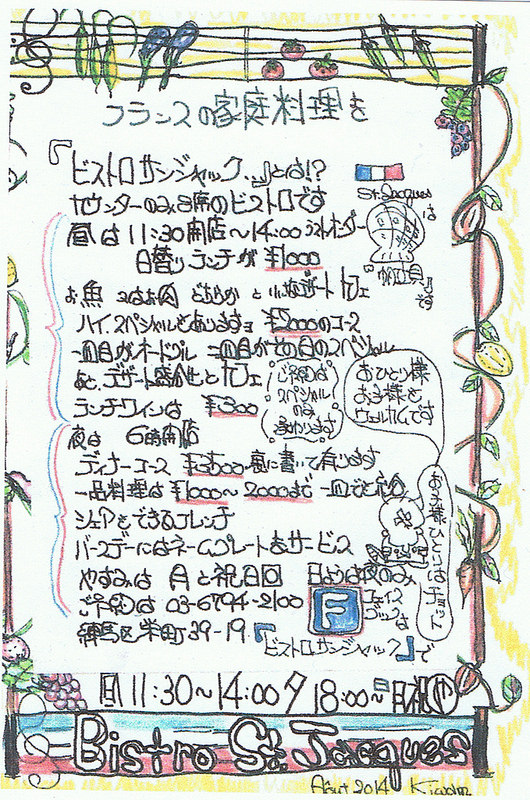 フランスの家庭料理を
『ビストロ サンジャック』とは!?
カウンターのみ8席のビストロです
St. Jacques は
『帆立貝』です
昼は 11:30開店〜14:00 ラストオーダー
日替りランチが ¥1000
お魚 又はお肉 どちらか と 小さなデザート カフェ
ハイ、スペシャルもありますョ ¥2000のコース
一皿目がオードブル 二皿目がその日のスペシャル
あと、デザート盛合せとカフェ
ランチワインは ¥300
ご予約は
スペシャル
のみ
承わります
おひとり様
お子様も
ウェルカムです
夜は 6時開店
ディナーコース ¥3500 裏に書いて有ります
一品料理は ¥1000〜2000まで 一皿でも
シェアもできるフレンチ
バースデーにはネームプレートをサービス
お子様ひとりはチョット
やすみは 月と祝日 日ようは夜のみ
ご予約は 03-6794-2100
F フェイスブックは
練馬区栄町39-19 『ビストロサンジャック』で
日 11:30〜14:00 夕 18:00〜
Bistro St. Jacques
Août 2014